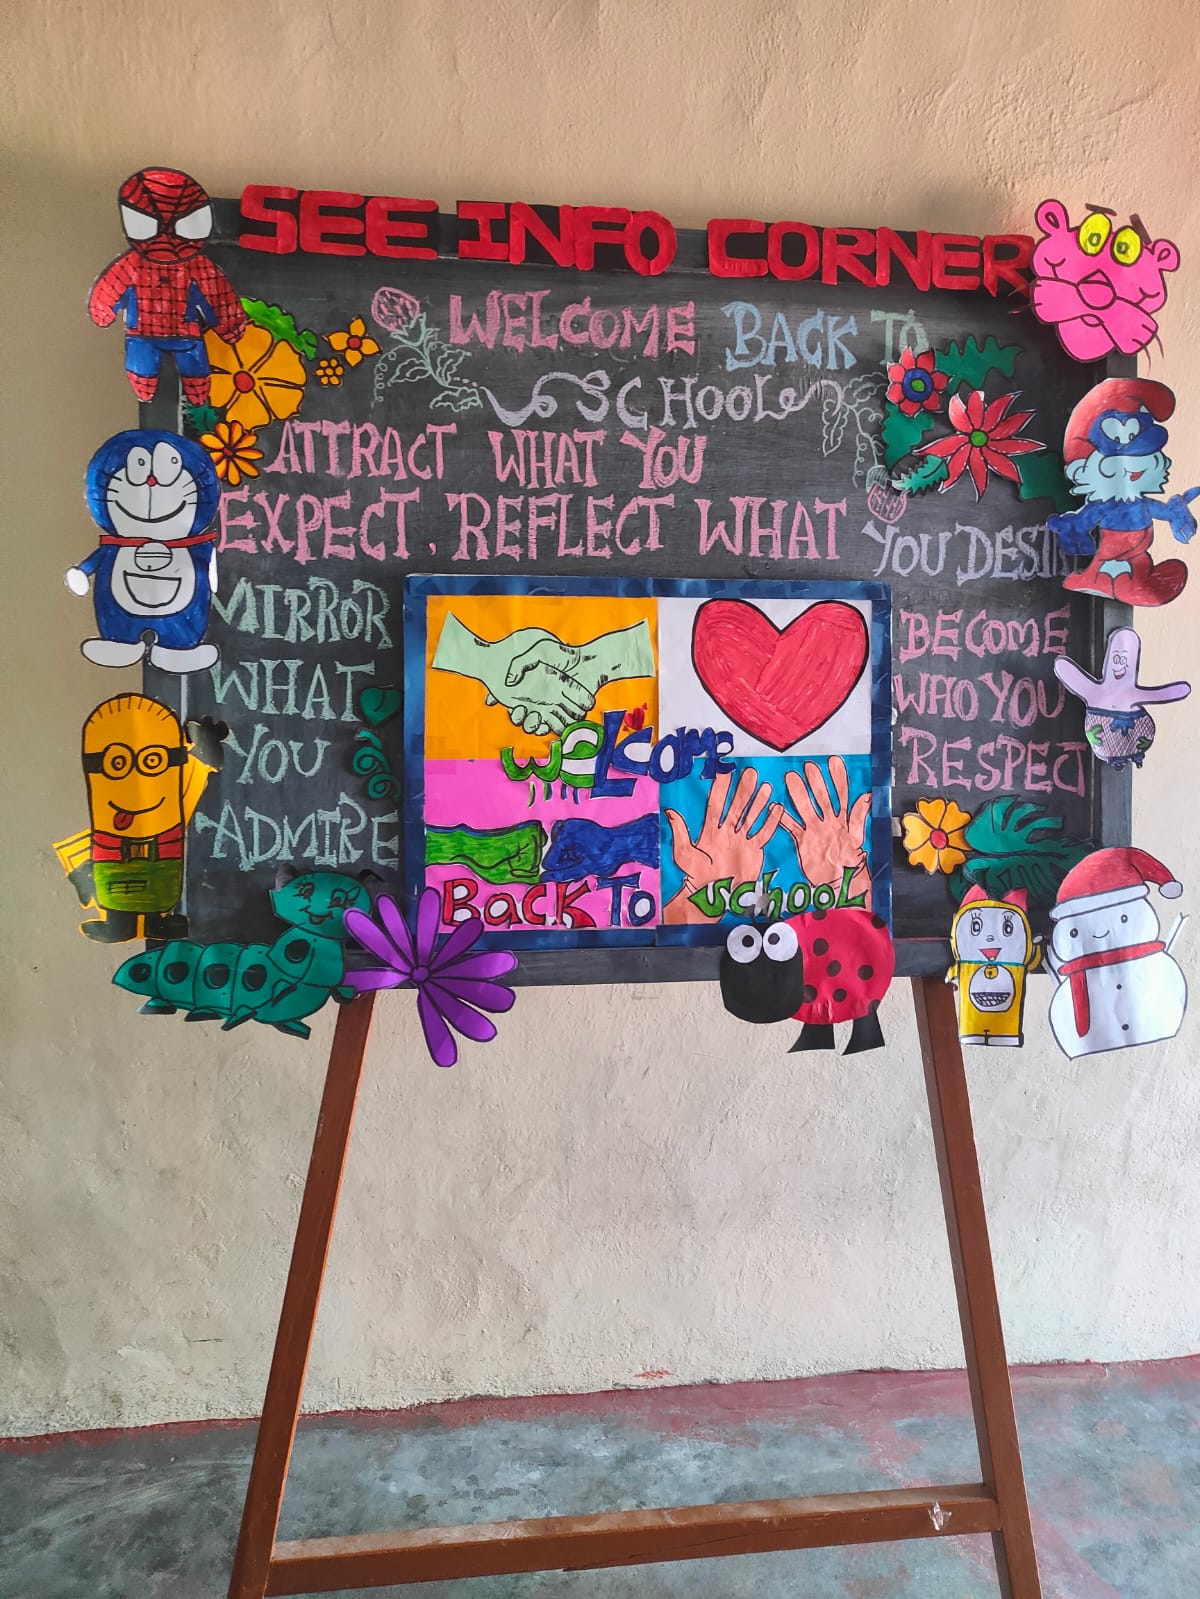 SEE INFO CORNER
WELCOME BACK TO
SCHOOL
ATTRACT WHAT YOU
EXPECT. REFLECT WHAT
YOU DESIRE
MIRROR
WHAT
YOU
ADMIRE
BECOME
WHO YOU
RESPECT
WELCOME
BACK TO
SCHOOL